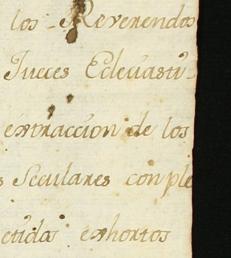 los Reverendos
Jueces Ecleciasti-
extraccion de los
s Seculares con ple
etida exhortos